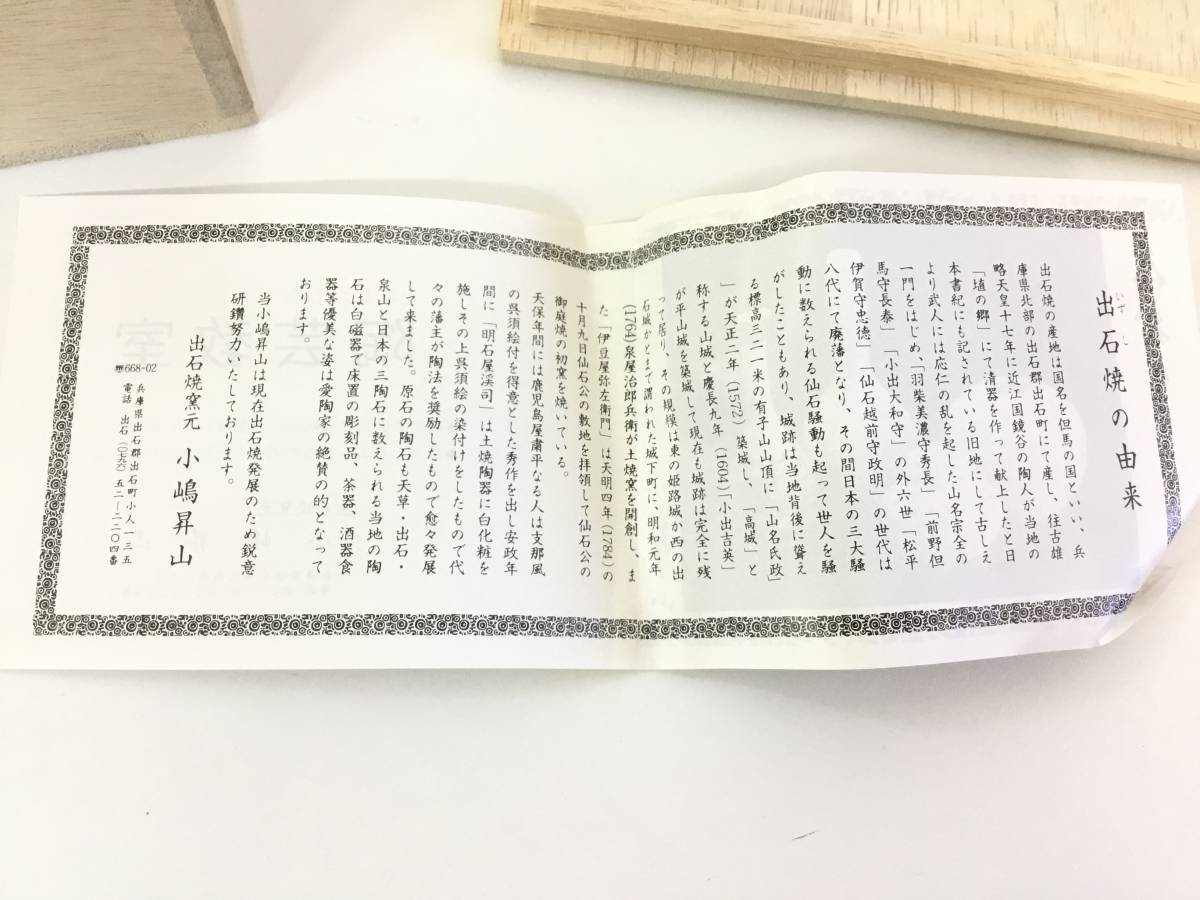 出石焼の由来
いずし
出石焼の産地は国名を但馬の国といい、兵
庫県北部の出石郡出石町にて産し、往古雄
略天皇十七年に近江国鏡谷の陶人が当地の
「埴の郷」にて清器を作って献上したと日
本書紀にも記されている旧地にして古しえ
より武人には応仁の乱を起した山名宗全の
一門をはじめ、「羽柴美濃守秀長」「前野但
馬守長泰」「小出大和守」の外六世「松平
伊賀守忠徳」「仙石越前守政明」の世代は
八代にて廃藩となり、その間日本の三大騒
動に数えられる仙石騒動も起って世人を騒
がしたこともあり、城跡は当地背後に聳え
る標高三二一米の有子山山頂に「山名氏政」
」が天正二年(1572)築城し、「高城」と
称する山城と慶長九年(1604)「小出吉英」
が平山城を築城して現在も城跡は完全に残
って居り、その規模は東の姫路城か西の出
石城かとまで謂われた城下町に、明和元年
(1764)泉屋治郎兵衛が土焼窯を開創し、ま
た「伊豆屋弥左衛門」は天明四年(1784)の
十月九日仙石公の敷地を拝領して仙石公の
御庭焼の初窯を焼いている。
天保年間には鹿児島屋粛平なる人は支那風
の呉須絵付を得意とした秀作を出し安政年
間に「明石屋渓司」は土焼陶器に白化粧を
施しその上呉須絵の染付けをしたもので代
々の藩主が陶法を奨励したもので愈々発展
して来ました。原石の陶石も天草・出石・
泉山と日本の三陶石に数えられる当地の陶
石は白磁器で床置の彫刻品、茶器、酒器食
器等優美な姿は愛陶家の絶賛の的となって
おります。
当小嶋昇山は現在出石焼発展のため鋭意
研鑽努力いたしております。
出石焼窯元 小嶋昇山
〒668-02 兵庫県出石郡出石町小人一三五
電話 出石(〇七九六)五二―二二〇四番